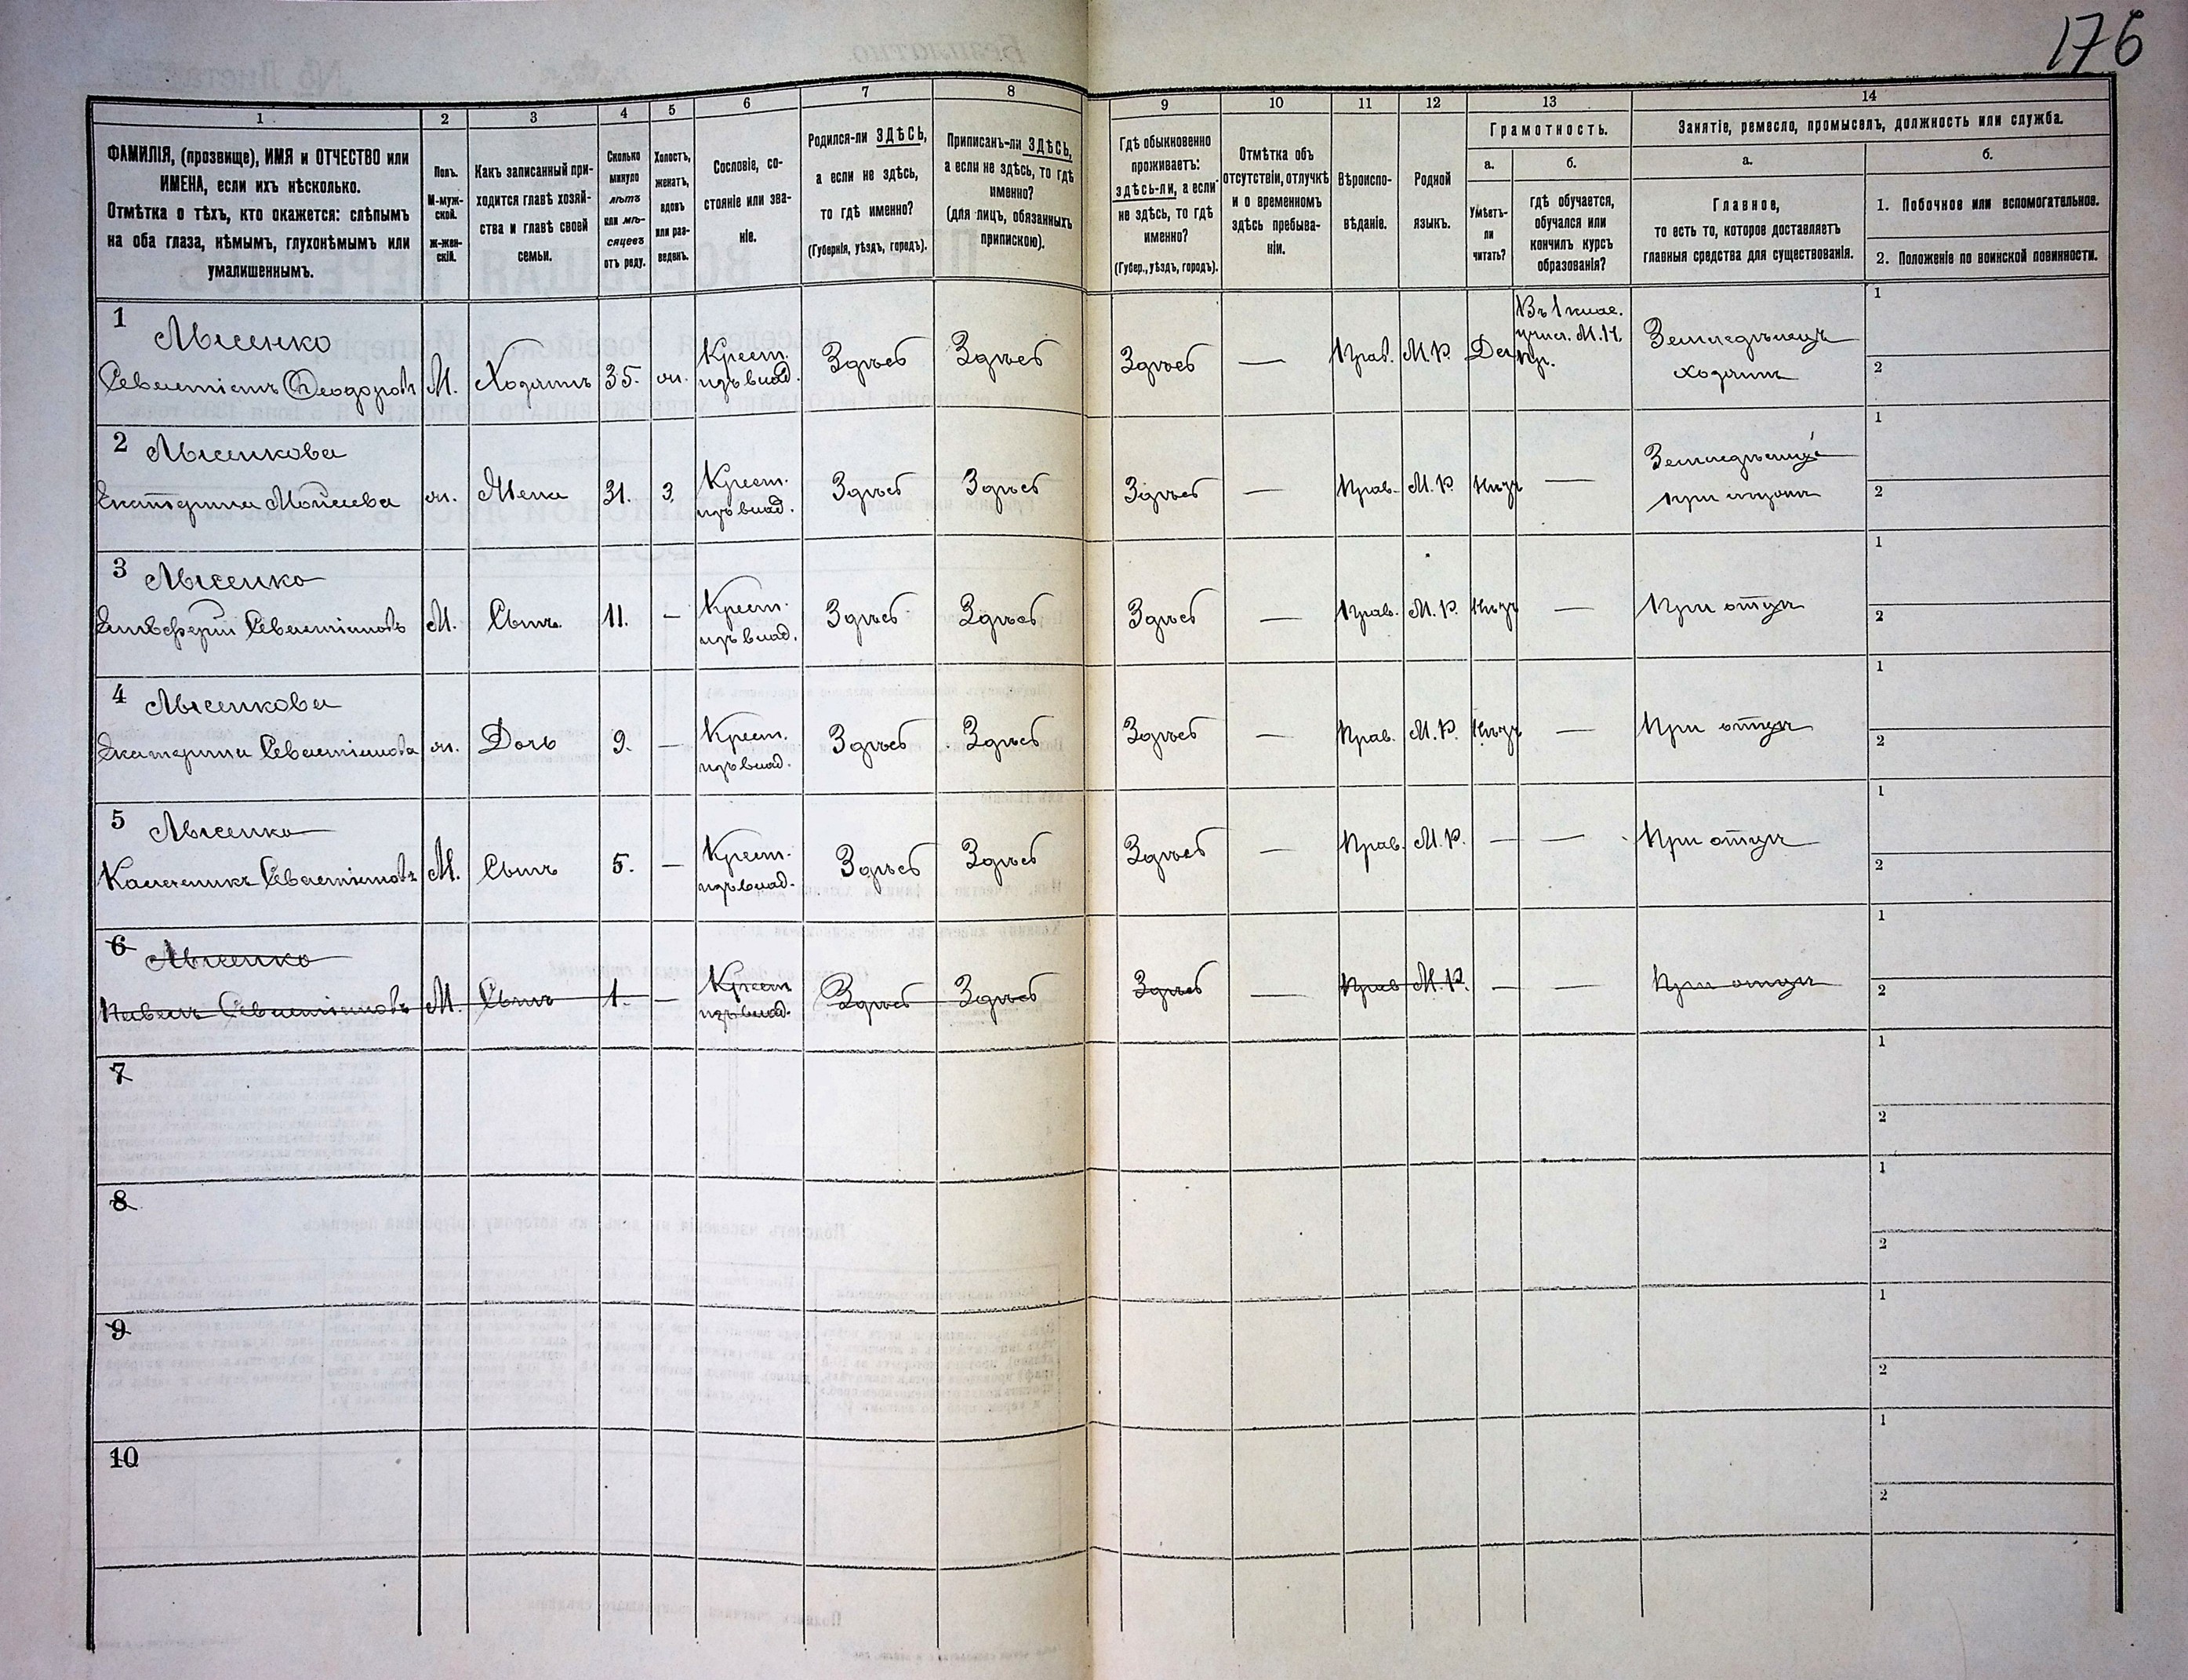 176
1 2 3 4 5 6 7 8 9 10 11 12 13 14
ФАМИЛІЯ, (прозвище), ИМЯ и ОТЧЕСТВО или
ИМЕНА, если ихъ нѣсколько.
Отмѣтка о тѣхъ, кто окажется: слѣпымъ
на оба глаза, нѣмымъ, глухонѣмымъ или
умалишеннымъ.
Полъ.
М-муж-
ской.
ж-жен-
скій.
Какъ записанный при-
ходится главѣ хозяй-
ства и главѣ своей
семьи.
Сколько
минуло
лѣтъ
или мѣ-
сяцевъ
отъ роду.
Холостъ,
женатъ,
вдовъ
или раз-
веденъ.
Сословіе, со-
стояніе или зва-
ніе.
Родился-ли ЗДѢСЬ,
а если не здѣсь,
то гдѣ именно?
(Губернія, уѣздъ, городъ).
Приписанъ-ли ЗДѢСЬ,
а если не здѣсь, то гдѣ
именно?
(для лицъ, обязанныхъ
припискою).
Гдѣ обыкновенно
проживаетъ:
здѣсь-ли, а если
не здѣсь, то гдѣ
именно?
(Губер., уѣздъ, городъ).
Отмѣтка объ
отсутствіи, отлучкѣ
и о временномъ
здѣсь пребыва-
ніи.
Вѣроиспо-
вѣданіе.
Родной
языкъ.
Грамотность.
а.
Умѣетъ-
ли
читать?
б.
гдѣ обучается,
обучался или
кончилъ курсъ
образованія?
Занятіе, ремесло, промыселъ, должность или служба.
а.
Главное,
то есть то, которое доставляетъ
главныя средства для существованія.
б.
1. Побочное или вспомогательное.
2. Положеніе по воинской повинности.
1 Лысенко
Севастіанъ Ѳеодоровъ М. Хозяинъ 35. ж. Крест. изъ влад. Здѣсь Здѣсь Здѣсь — Прав. М.Р. Да Въ 1 клас. учил. М.Н. пр. Земледѣлецъ хозяинъ 1 2
2 Лысенкова
Екатерина Моисеева ж. Жена 31. з. Крест. изъ влад. Здѣсь Здѣсь Здѣсь — Прав. М.Р. Нѣтъ — Земледѣлица при мужѣ 1 2
3 Лысенко
Елевферій Севастіановъ М. Сынъ 11. — Крест. изъ влад. Здѣсь Здѣсь Здѣсь — Прав. М.Р. Нѣтъ — При отцѣ 1 2
4 Лысенкова
Екатерина Севастіанова ж. Дочь 9. — Крест. изъ влад. Здѣсь Здѣсь Здѣсь — Прав. М.Р. Нѣтъ — При отцѣ 1 2
5 Лысенко
Каленикъ Севастіановъ М. Сынъ 5. — Крест. изъ влад. Здѣсь Здѣсь Здѣсь — Прав. М.Р. — — При отцѣ 1 2
6 Лысенко
Павелъ Севастіановъ М. Сынъ 1. — Крест. изъ влад. Здѣсь Здѣсь Здѣсь — Прав М.Р. — — При отцѣ 1 2
7 1 2
8 1 2
9 1 2
10 1 2